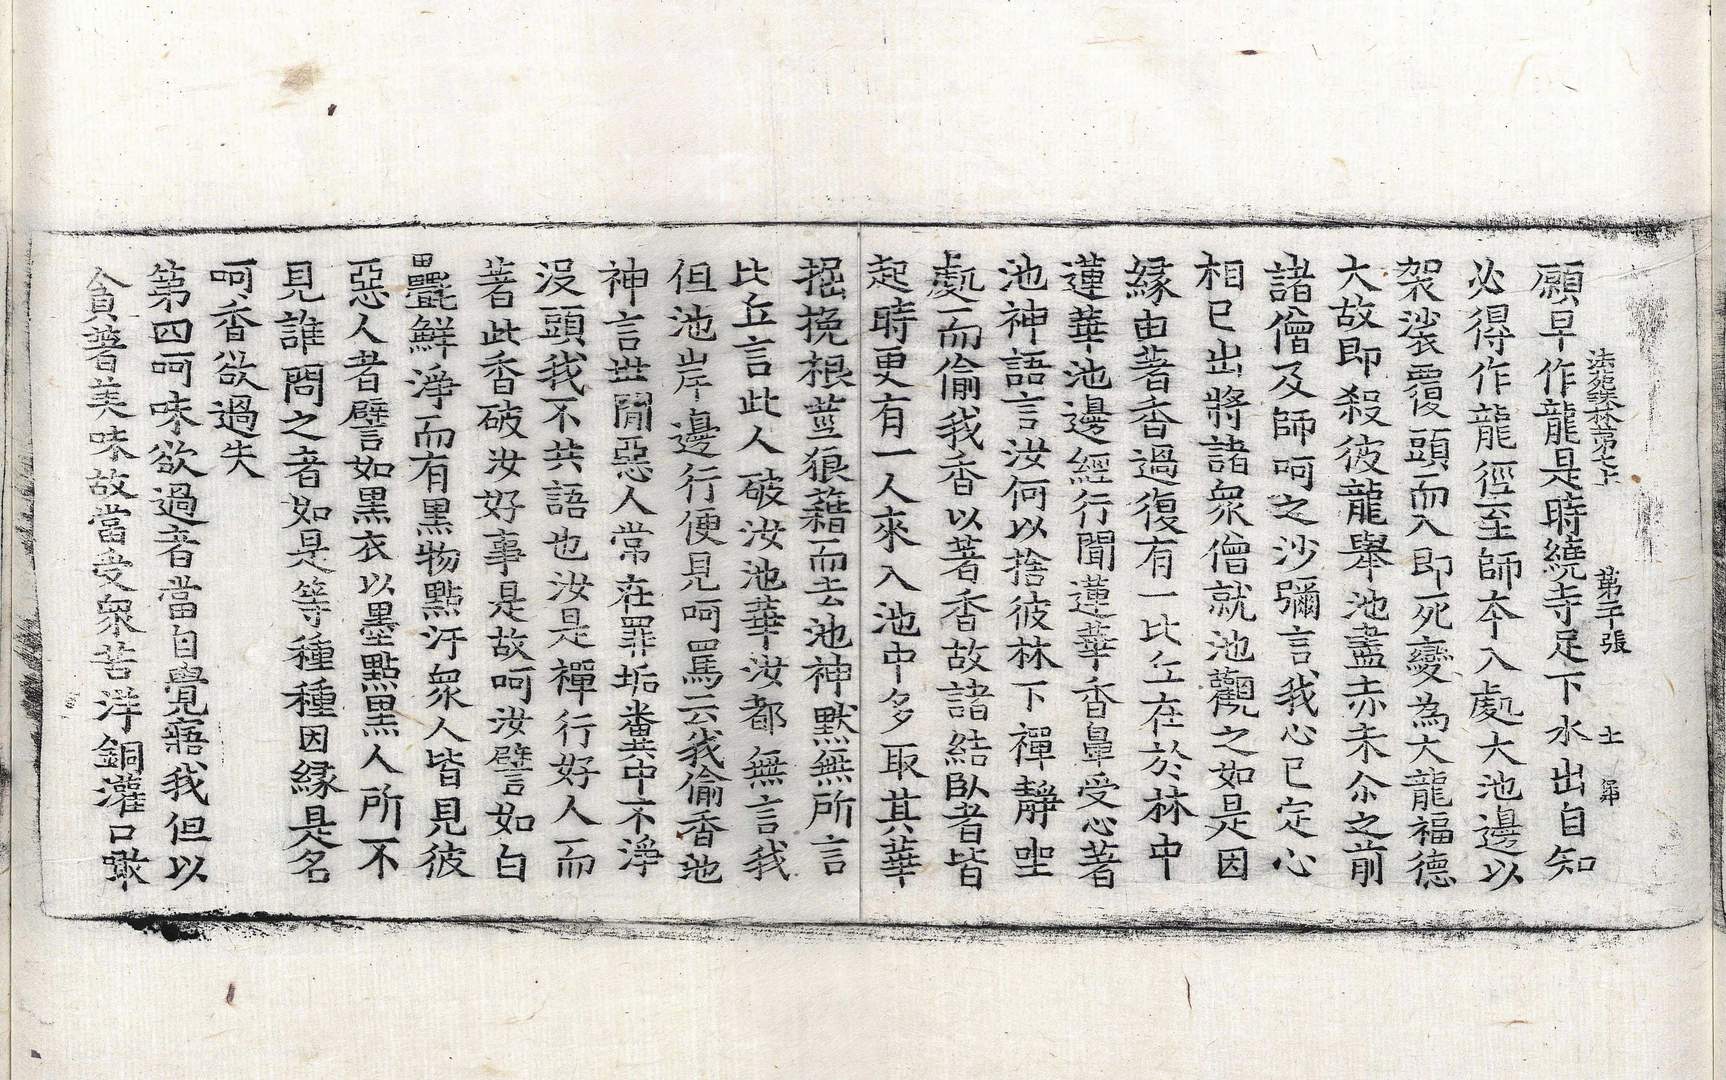 法苑珠林第七十 第二十張 士 第
願早作龍是時繞寺足下水出自知
必得作龍徑至師夲入處大池邊以
袈裟覆頭而入即死變為大龍福德
大故即殺彼龍舉池盡赤未尒之前
諸僧及師呵之沙彌言我心已定心
相已出將諸衆僧就池觀之如是因
縁由著香過復有一比丘在於林中
蓮華池邊經行聞蓮華香鼻受心著
池神語言汝何以捨彼林下禪靜坐
處而偷我香以著香故諸結臥者皆
起時更有一人來入池中多取其華
掘挽根莖狼藉而去池神默無所言
比丘言此人破汝池華汝都無言我
但池岸邊行便見呵罵云我偷香池
神言世閒惡人常在罪垢糞中不淨
沒頭我不共語也汝是禪行好人而
著此香破汝好事是故呵汝譬如白
㲲鮮淨而有黑物點汙衆人皆見彼
惡人者譬如黑衣以墨點黑人所不
見誰問之者如是等種種因縁是名
呵香欲過失
第四呵味欲過者當自覺寤我但以
貪著美味故當受衆苦洋銅灌口噉